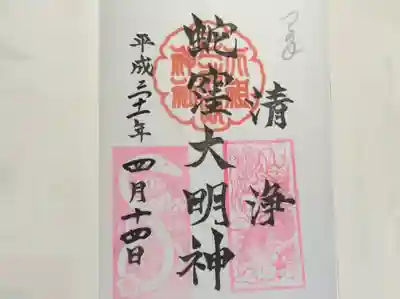 清浄
蛇窪大明神
平成三十一年
四月十四日